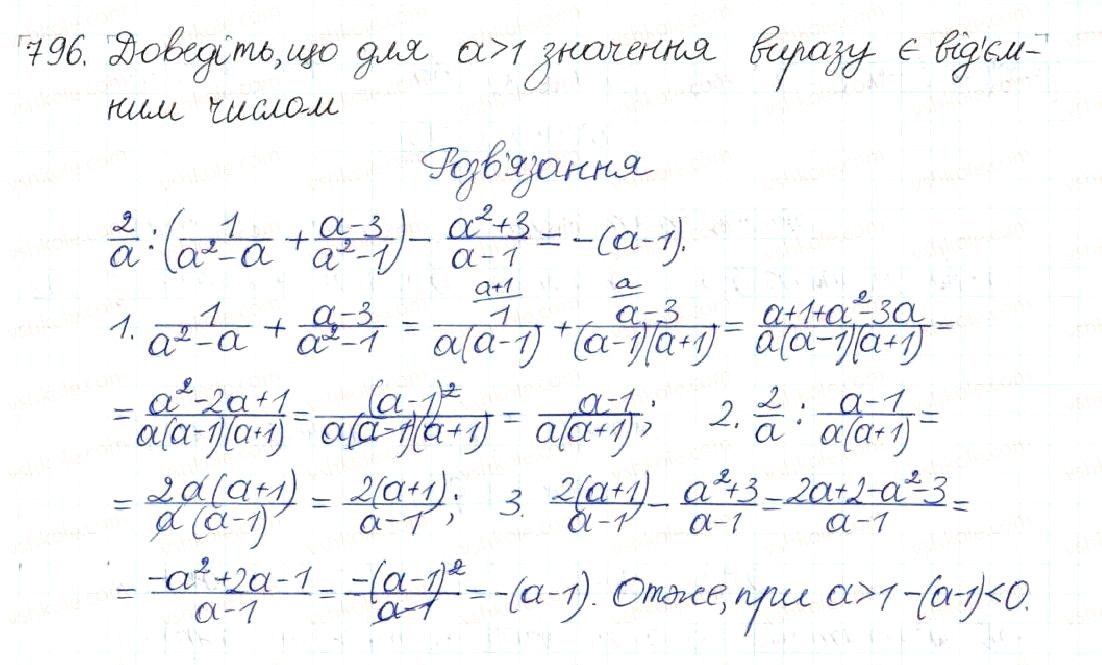 796. Доведіть, що для a>1 значення виразу є від'єм-
ним числом
Розв'язання
2/a : (1/(a²-a) + (a-3)/(a²-1)) - (a²+3)/(a-1) = -(a-1).
1. 1/(a²-a) + (a-3)/(a²-1) = (a+1)/ 1/(a(a-1)) + a/ (a-3)/((a-1)(a+1)) = (a+1+a²-3a)/(a(a-1)(a+1)) =
= (a²-2a+1)/(a(a-1)(a+1)) = (a-1)²/(a(a-1)(a+1)) = (a-1)/(a(a+1)); 2. 2/a : (a-1)/(a(a+1)) =
= 2a(a+1)/(a(a-1)) = 2(a+1)/(a-1); 3. 2(a+1)/(a-1) - (a²+3)/(a-1) = (2a+2-a²-3)/(a-1) =
= (-a²+2a-1)/(a-1) = -(a-1)²/(a-1) = -(a-1). Отже, при a>1 -(a-1)<0.